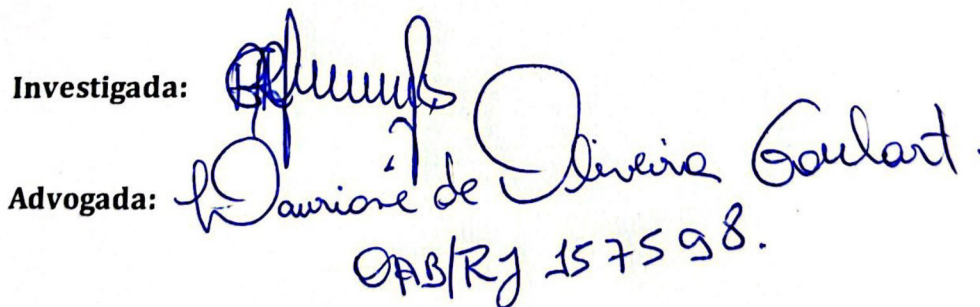 Investigada:
Advogada: Dauriane de Oliveira Goulart.
OAB/RJ 157598.